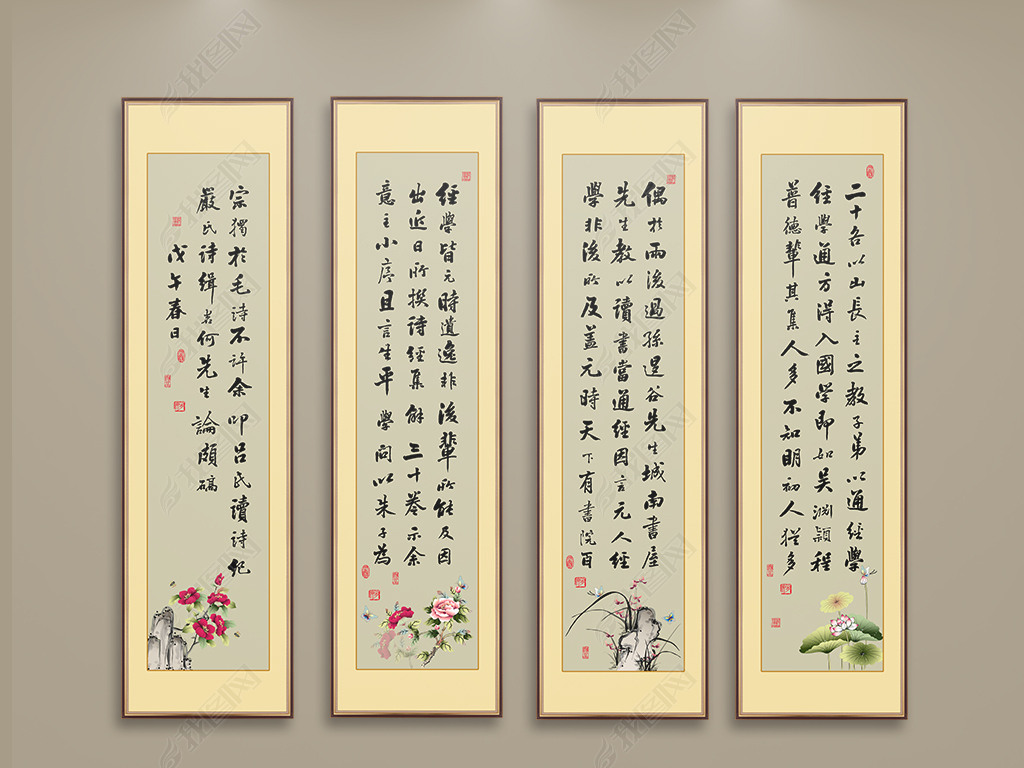 偶於雨後過孫退谷先生城南書屋
先生教以讀書當通經因言元人經
學非後所及蓋元時天下有書院百
二十各以山長主之教子弟以通經學
經學通方得入國學即如吳淵穎程
普德輩其集人多不知明初人猶多
經學皆元時遺逸非後輩所能及因
出近日所撰詩經集解三十卷示余
意主小序且言生平學問以朱子為
宗獨於毛詩不許余叩呂氏讀詩紀
嚴氏詩緝者何先生論頗碻
戊午春日